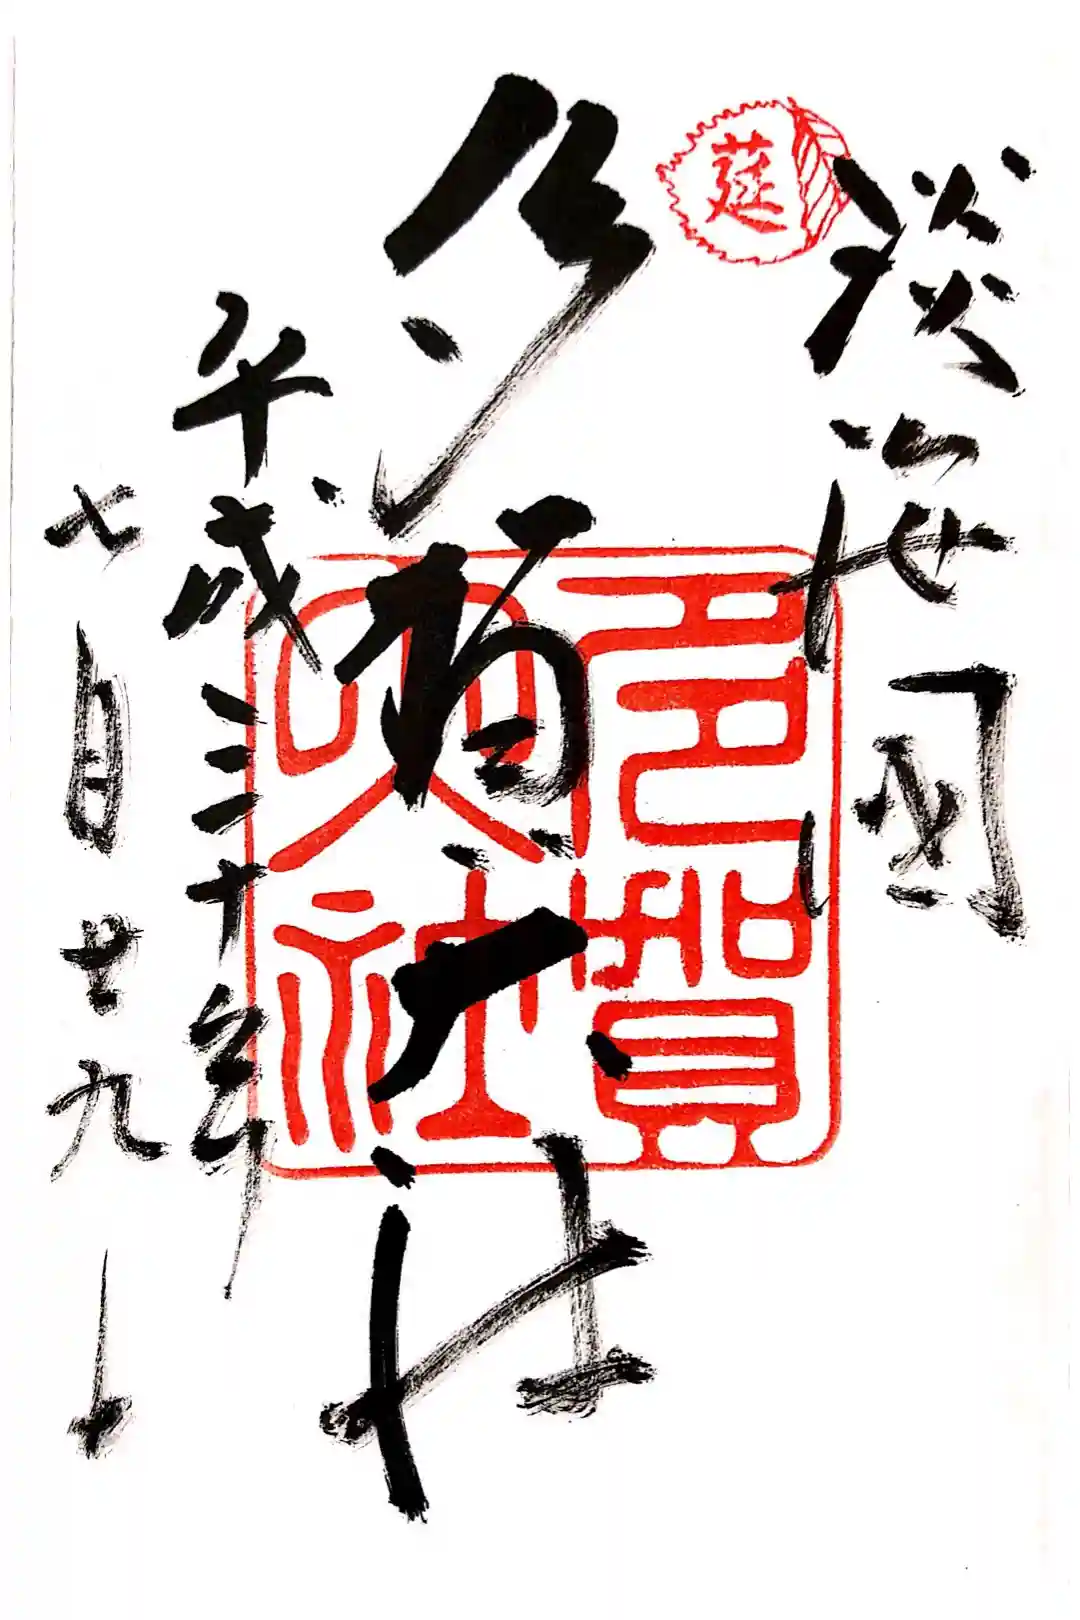 淡海國
莚
多賀大社
多賀
大社
平成三十年
七月廿九日